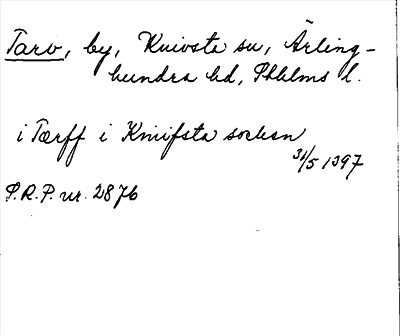 Tarv, by, Knivsta sn, Ärling-
hundra hd, Sthlms l.
i Tærff i Knifsta socken
31/5 1397
P.R.P. nr. 2876